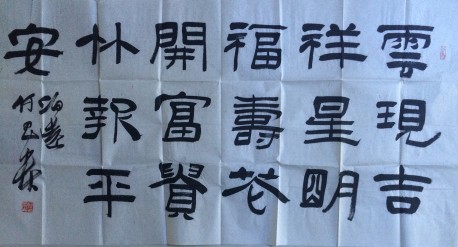 雲現吉
祥星明
福壽花
開富貴
竹報平
安